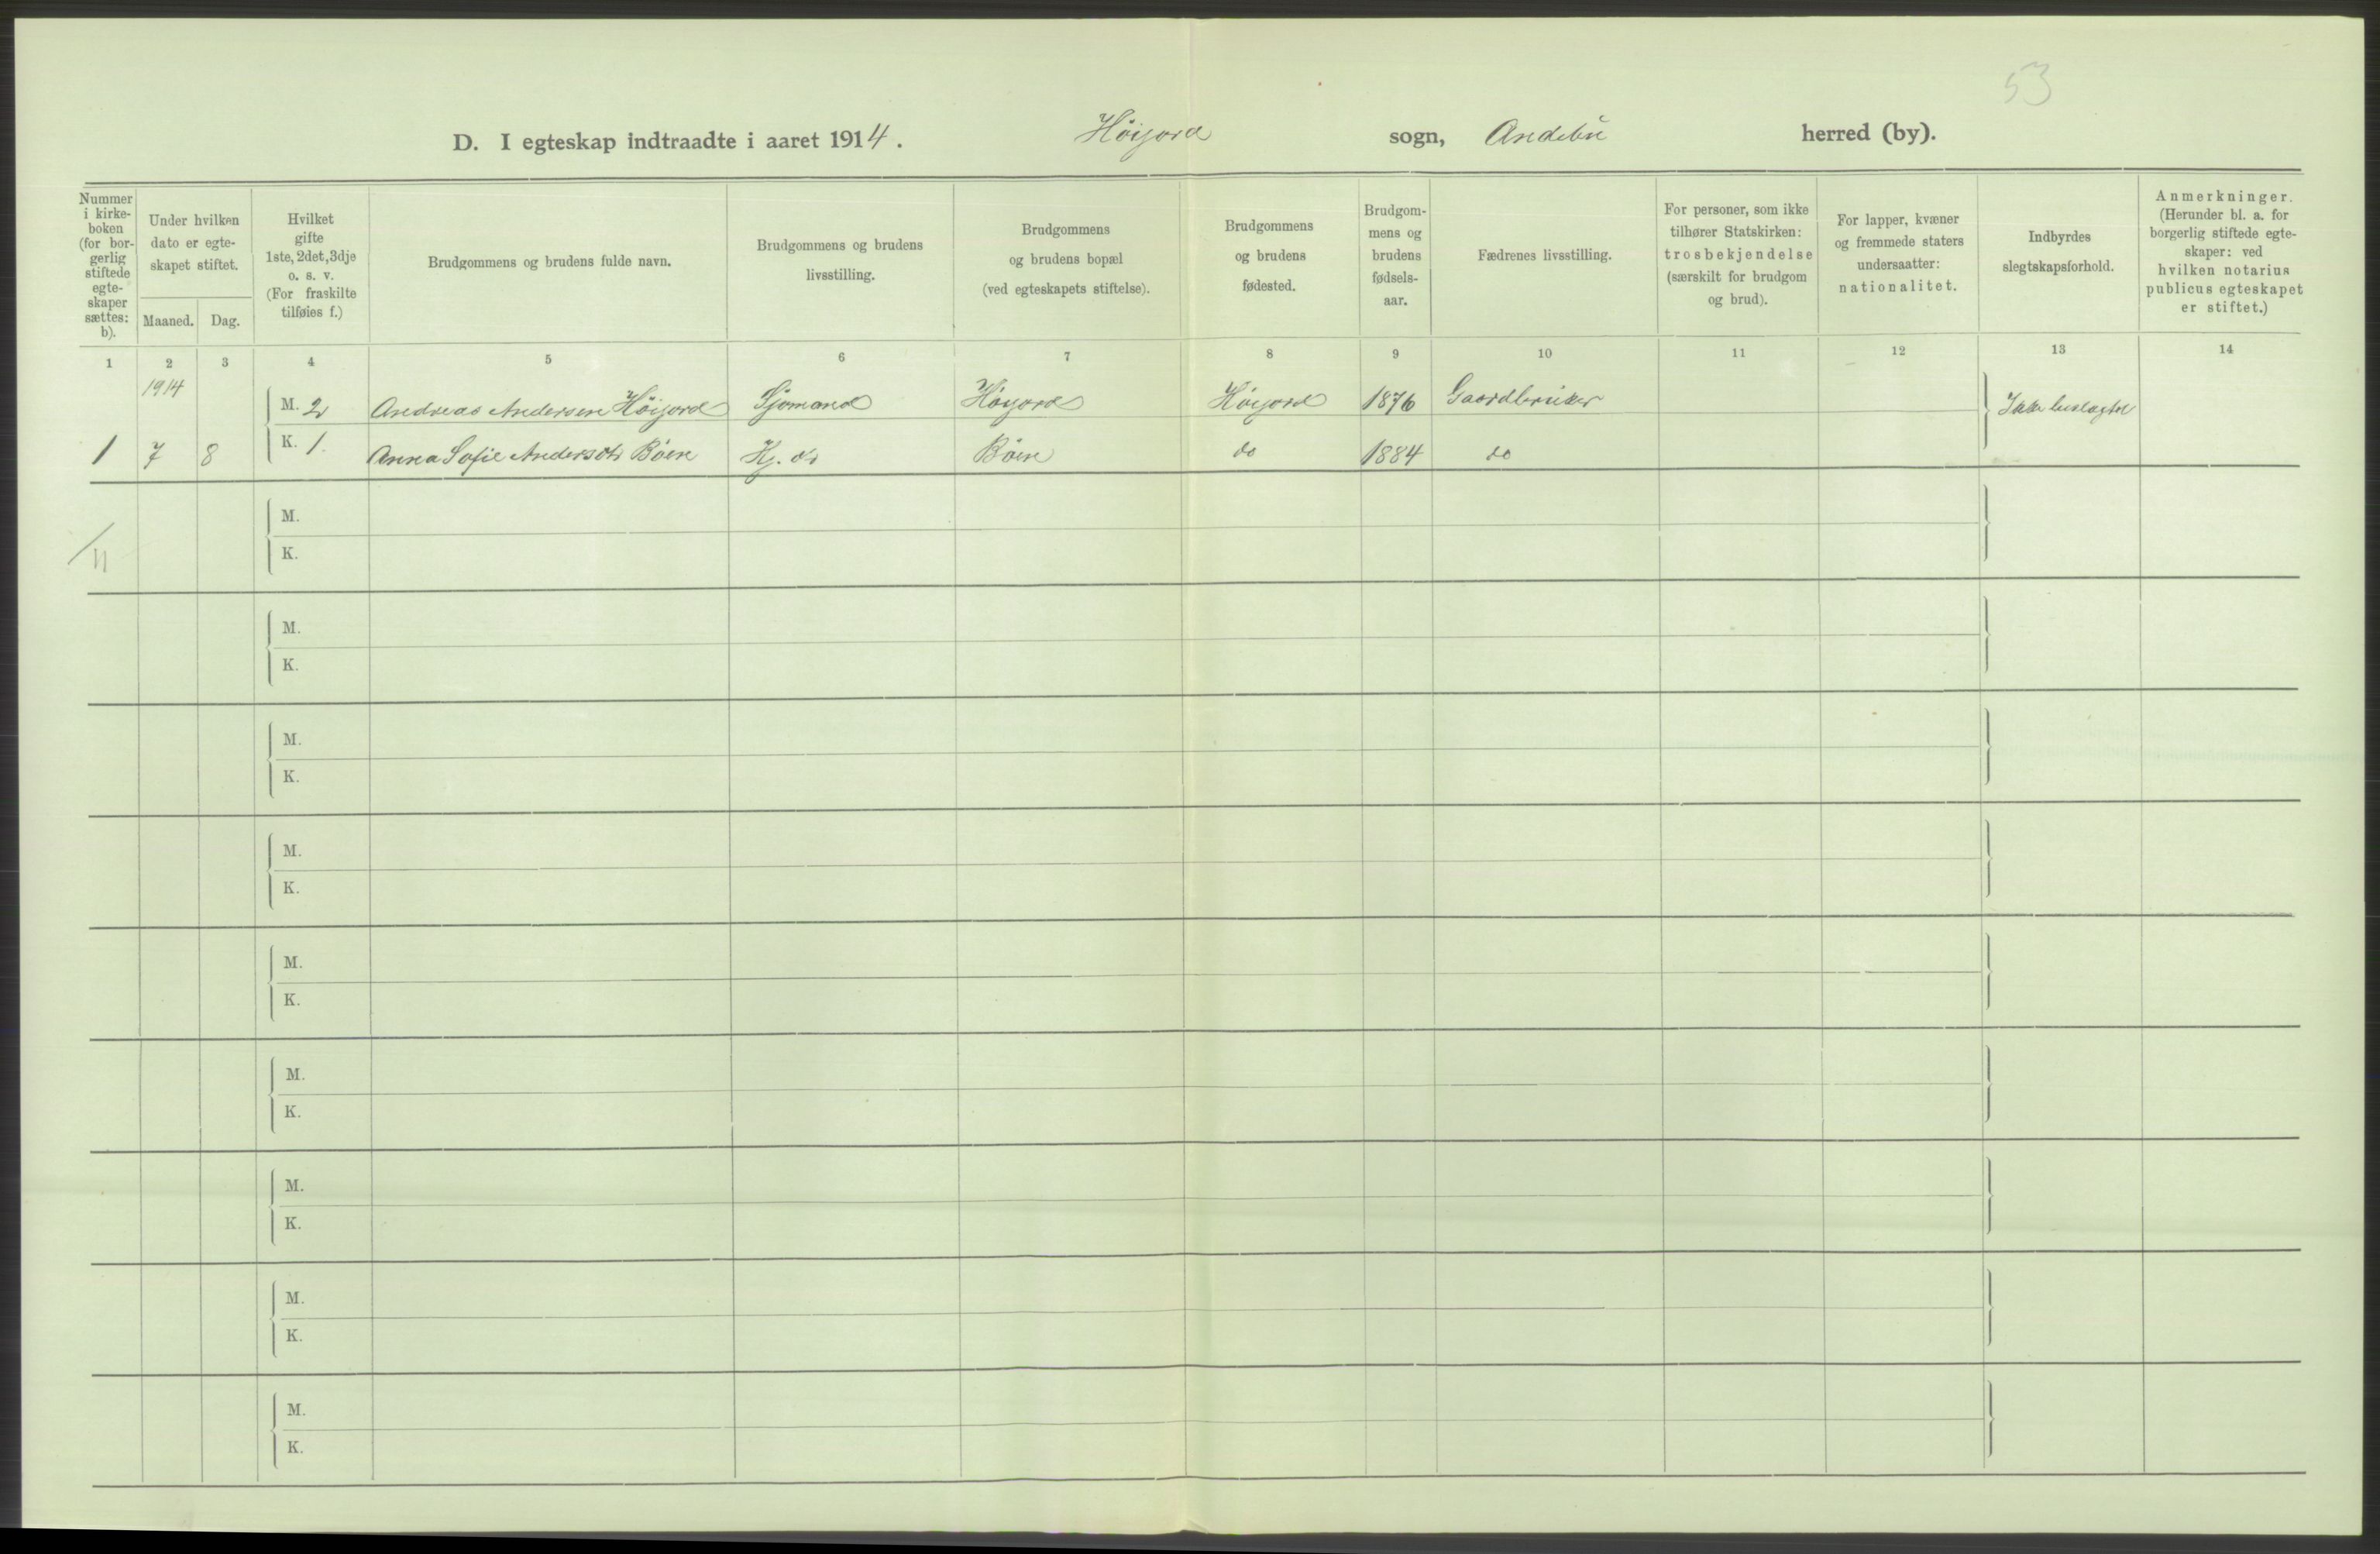 53
D. I egteskap indtraadte i aaret 1914. Høijord sogn, Andebu herred (by).
Nummer i kirke- boken (for bor- gerlig stiftede egte- skaper sættes: b).
Under hvilken dato er egte- skapet stiftet.
Maaned. Dag.
Hvilket gifte 1ste, 2det, 3dje o. s. v. (For fraskilte tilføies f.)
Brudgommens og brudens fulde navn.
Brudgommens og brudens livsstilling.
Brudgommens og brudens bopæl (ved egteskapets stiftelse).
Brudgommens og brudens fødested.
Brudgom- mens og brudens fødsels- aar.
Fædrenes livsstilling.
For personer, som ikke tilhører Statskirken: trosbekjendelse (særskilt for brudgom og brud).
For lapper, kvæner og fremmede staters undersaatter: nationalitet.
Indbyrdes slegtskapsforhold.
Anmerkninger. (Herunder bl. a. for borgerlig stiftede egte- skaper: ved hvilken notarius publicus egteskapet er stiftet.)
1 2 3 4 5 6 7 8 9 10 11 12 13 14
1914
M. 2 Andreas Andersen Høijord Sjømand Høijord Høijord 1876 Gaardbruker Ikke beslægtet
1 7 8 K. 1. Anna Sofie Andersdtr Bøen Bøen do 1884 do
M.
K.
M.
K.
M.
K.
M.
K.
M.
K.
M.
K.
M.
K.
M.
K.
M.
K.